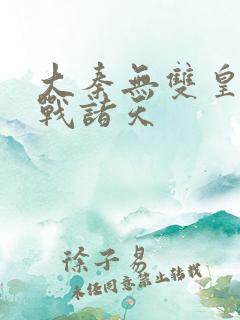 大秦無雙皇
戰諸天
徐子易
未经同意禁止转载